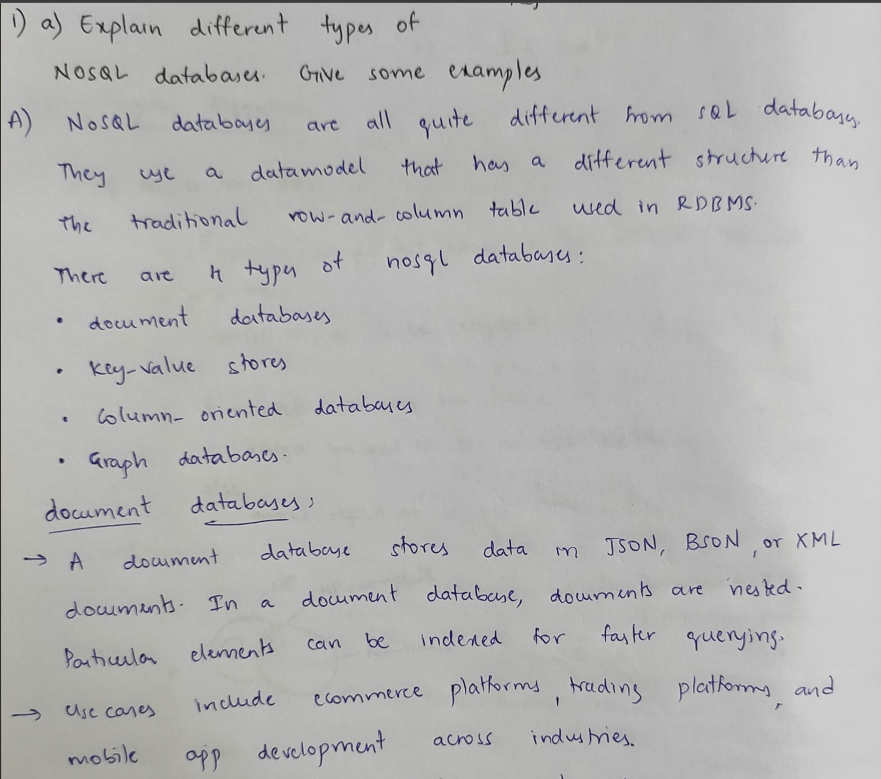 1) a) Explain different types of
NOSQL databases. Give some examples
A) NoSQL databases are all quite different from SQL databases.
They use a datamodel that has a different structure than
the traditional row-and-column table used in RDBMS.
There are 4 types of nosql databases:
• document databases
• Key-value stores
• Column-oriented databases
• Graph databases.
document databases:
→ A document database stores data in JSON, BSON, or XML
documents. In a document database, documents are nested.
Particular elements can be indexed for faster querying.
→ Use cases include ecommerce platforms, trading platforms, and
mobile app development across industries.